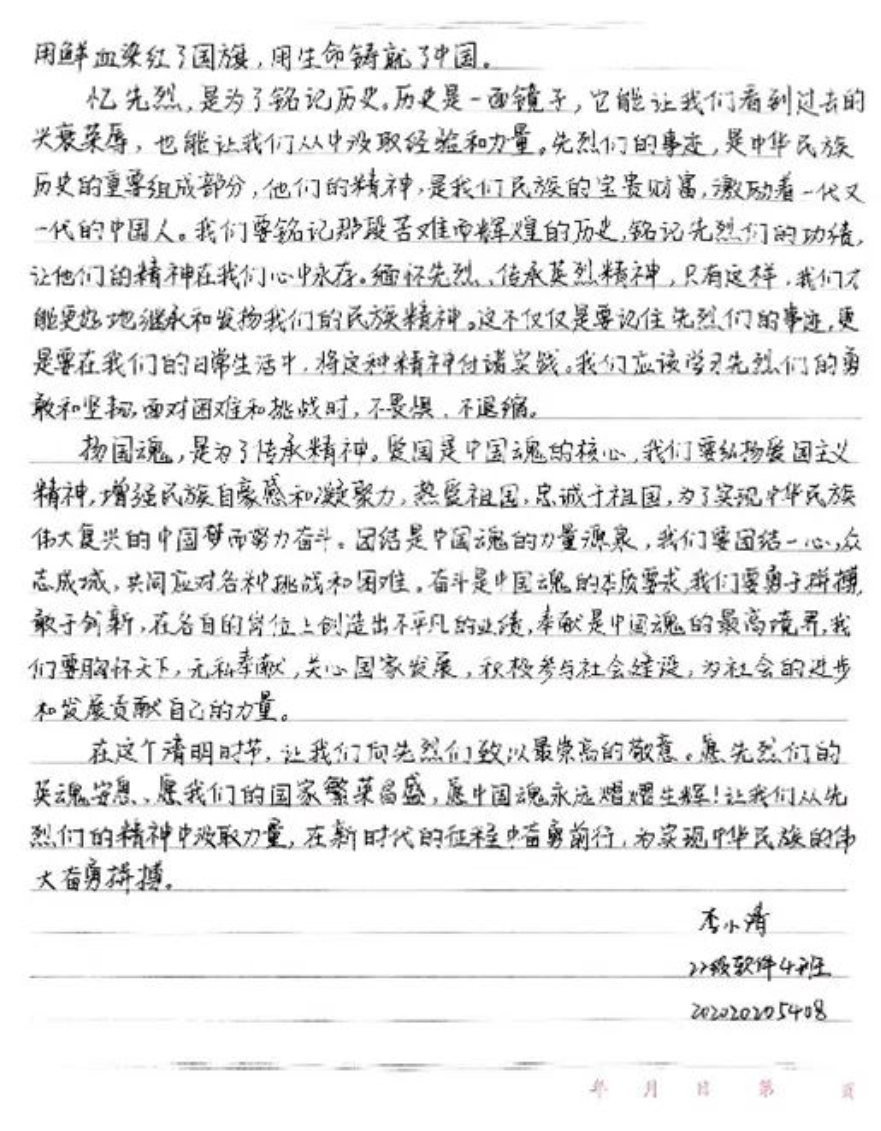 用鲜血染红了国旗，用生命铸就了中国。
忆先烈，是为了铭记历史。历史是一面镜子，它能让我们看到过去的
兴衰荣辱，也能让我们从中汲取经验和力量。先烈们的事迹，是中华民族
历史的重要组成部分，他们的精神，是我们民族的宝贵财富，激励着一代又
一代的中国人。我们要铭记那段苦难而辉煌的历史，铭记先烈们的功绩，
让他们的精神在我们心中永存。缅怀先烈、传承英烈精神，只有这样，我们才
能更好地继承和发扬我们的民族精神。这不仅仅是要记住先烈们的事迹，更
是要在我们的日常生活中，将这种精神付诸实践。我们应该学习先烈们的勇
敢和坚韧，面对困难和挑战时，不畏惧、不退缩。
扬国魂，是为了传承精神。爱国是中国魂的核心，我们要弘扬爱国主义
精神，增强民族自豪感和凝聚力，热爱祖国，忠诚于祖国，为了实现中华民族
伟大复兴的中国梦而努力奋斗。团结是中国魂的力量源泉，我们要团结一心，众
志成城，共同应对各种挑战和困难。奋斗是中国魂的本质要求，我们要勇于拼搏，
敢于创新，在各自的岗位上创造出不平凡的业绩，奉献是中国魂的最高境界，我
们要胸怀天下，无私奉献，关心国家发展，积极参与社会建设，为社会的进步
和发展贡献自己的力量。
在这个清明时节，让我们向先烈们致以最崇高的敬意。愿先烈们的
英魂安息、愿我们的国家繁荣昌盛，愿中国魂永远熠熠生辉！让我们从先
烈们的精神中汲取力量，在新时代的征程中奋勇前行，为实现中华民族的伟
大奋勇拼搏。
李小清
22级软件4班
202020205408
年 月 日 第 页